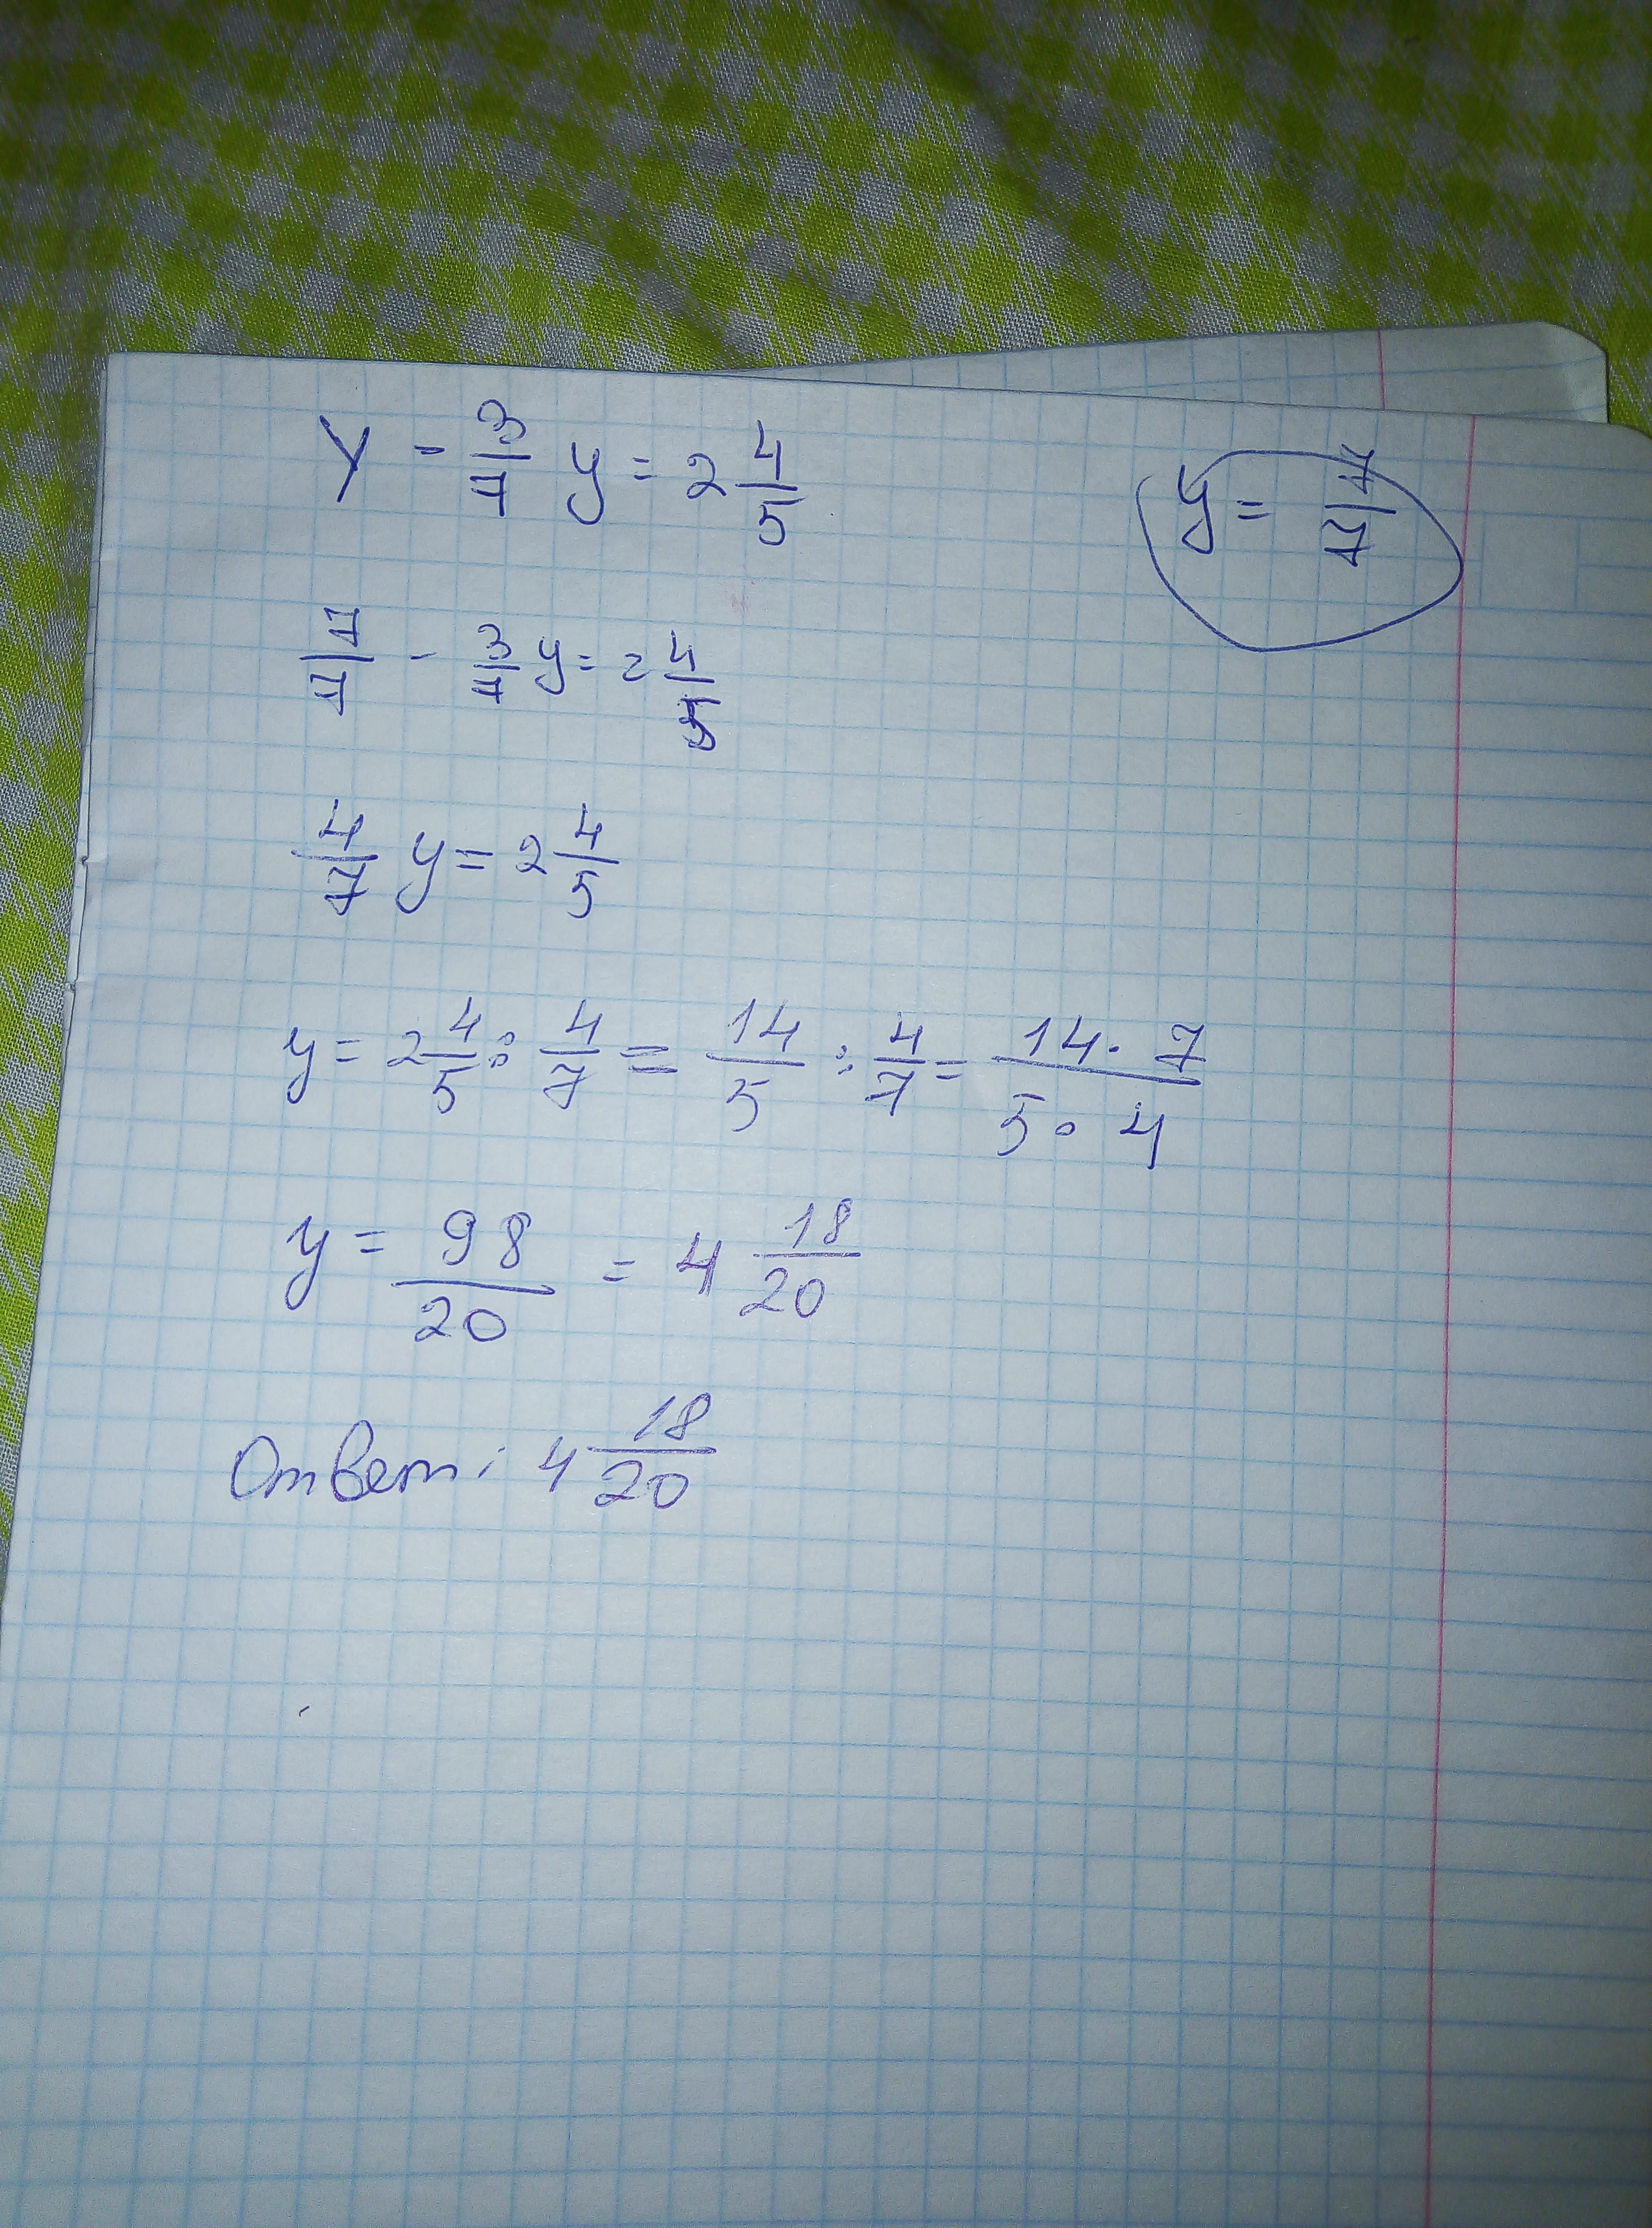 y - 3/7 y = 2 4/5
y = 7/7
7/7 - 3/7 y = 2 4/5
4/7 y = 2 4/5
y = 2 4/5 : 4/7 = 14/5 : 4/7 = 14 · 7 / 5 · 4
y = 98/20 = 4 18/20
Ответ: 4 18/20